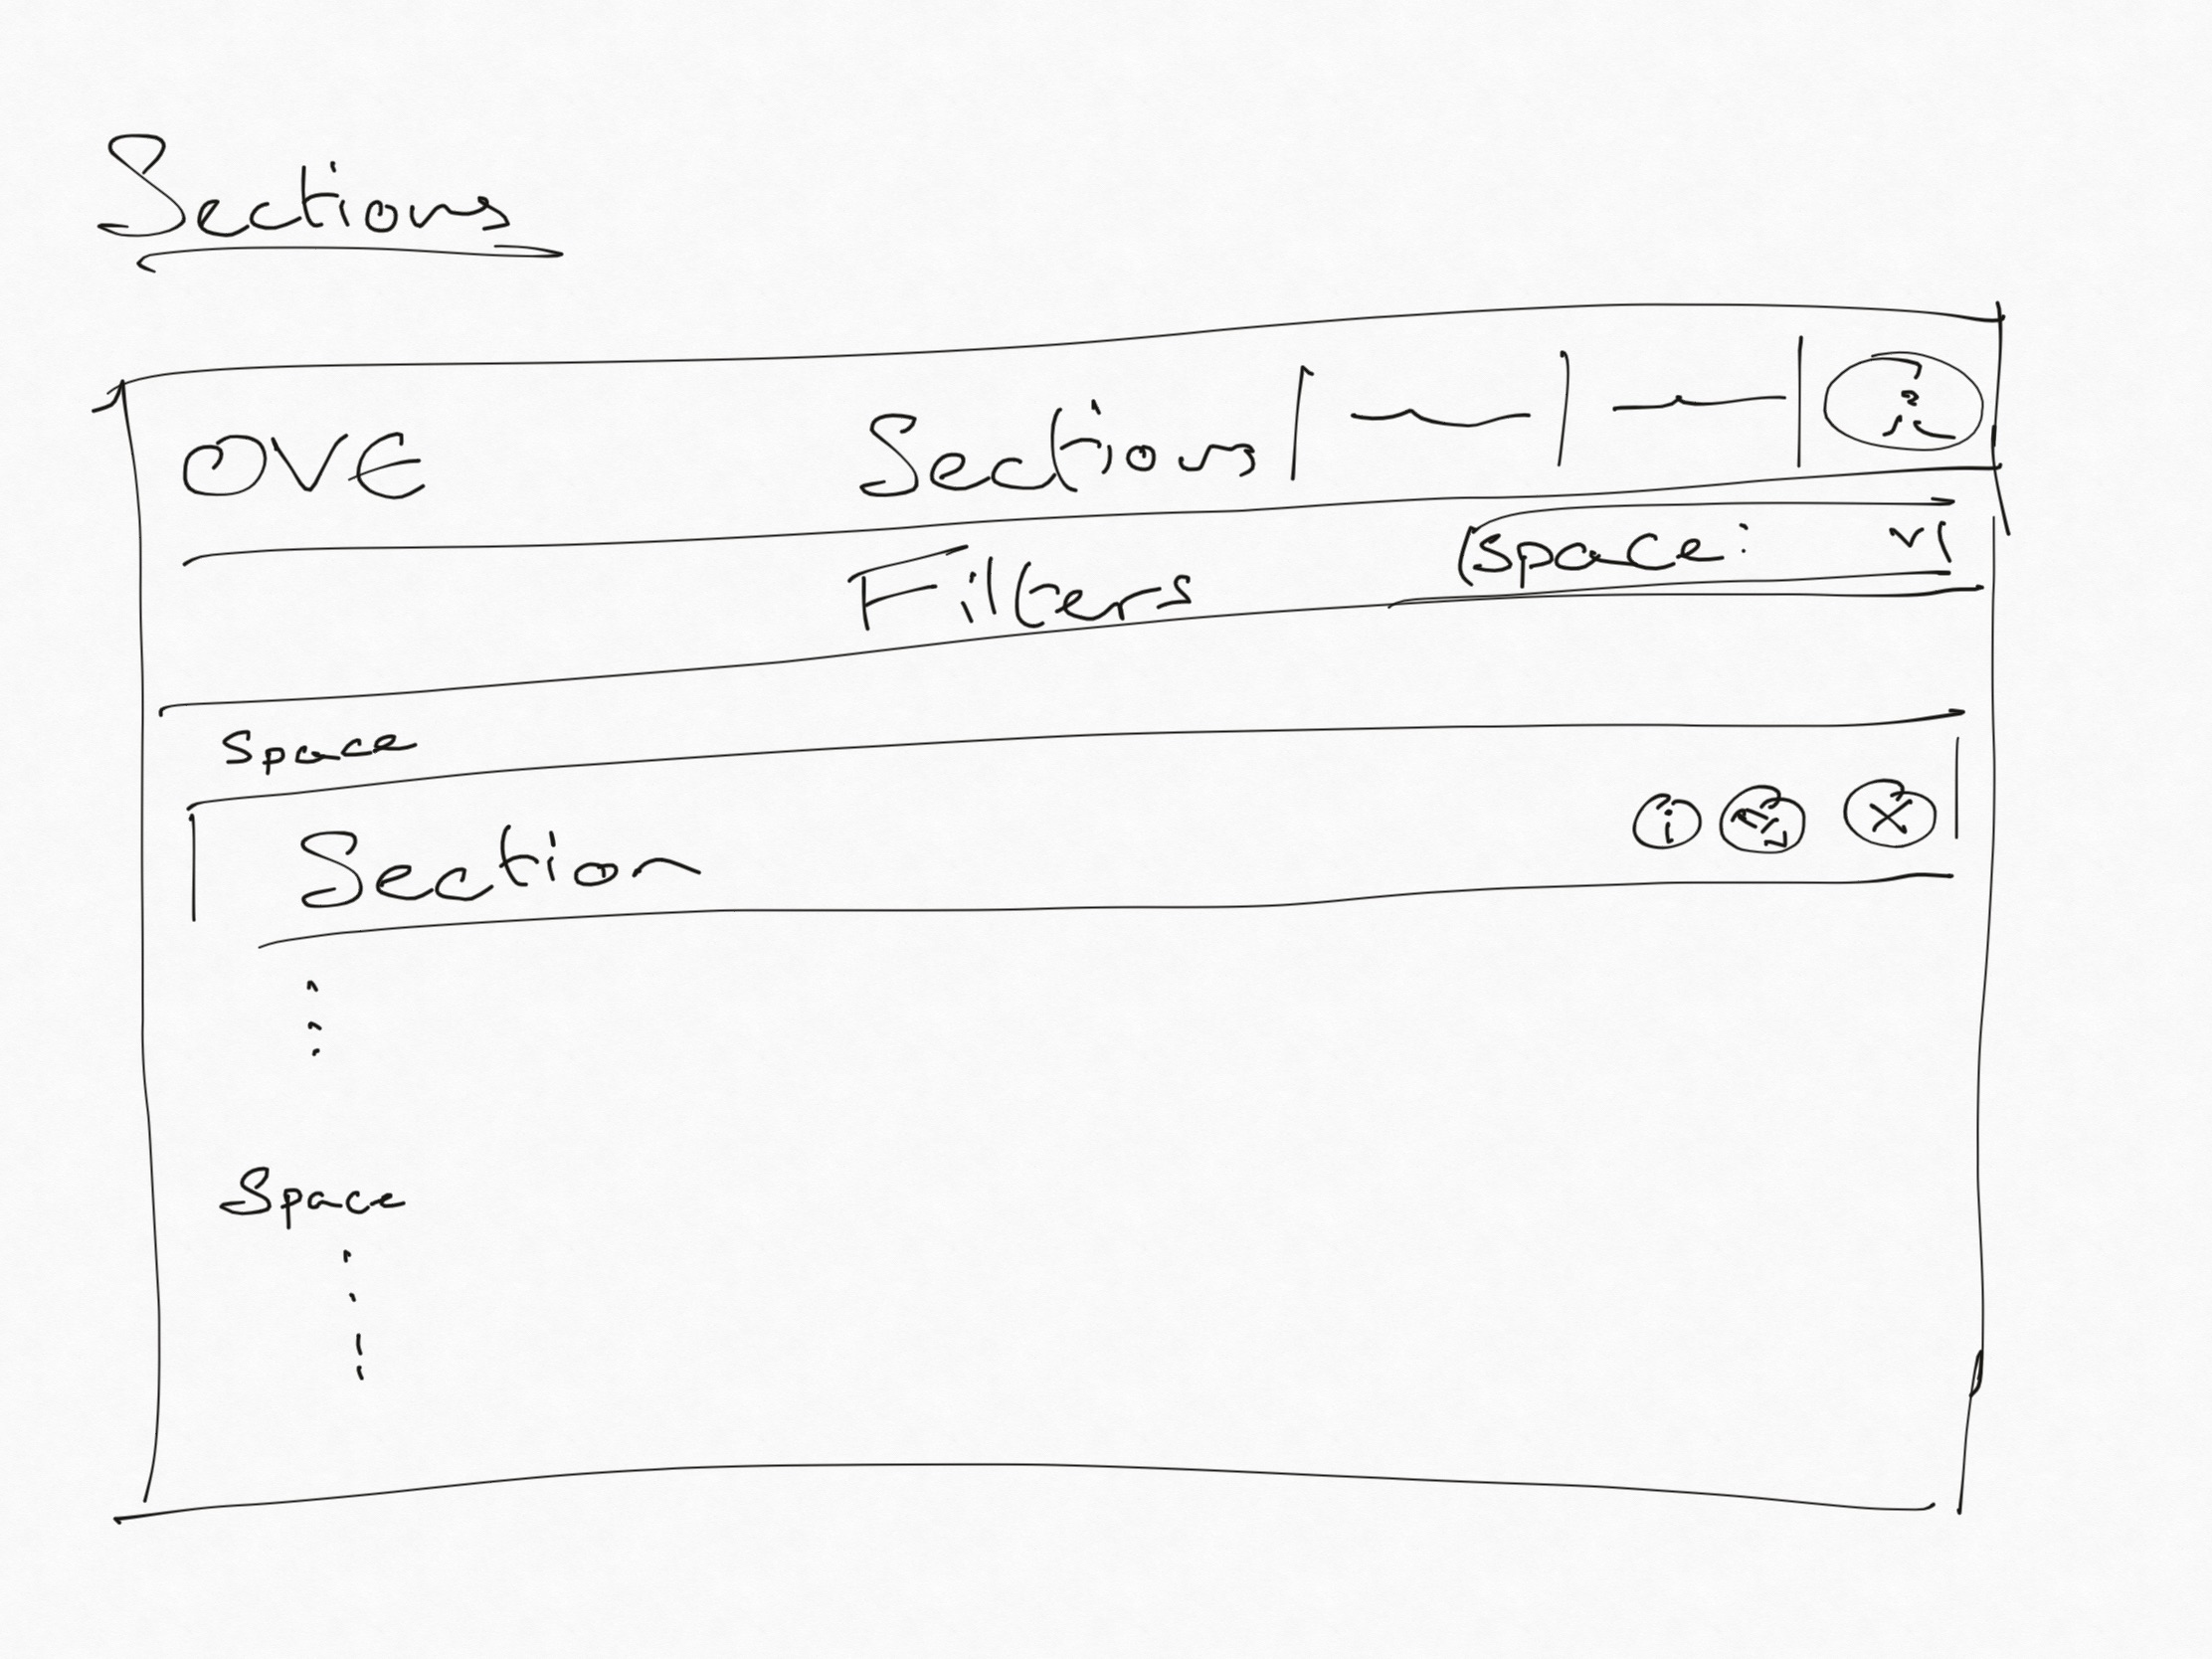 Sections
OVE Sections
Filters space:
Space
Section i X
Space